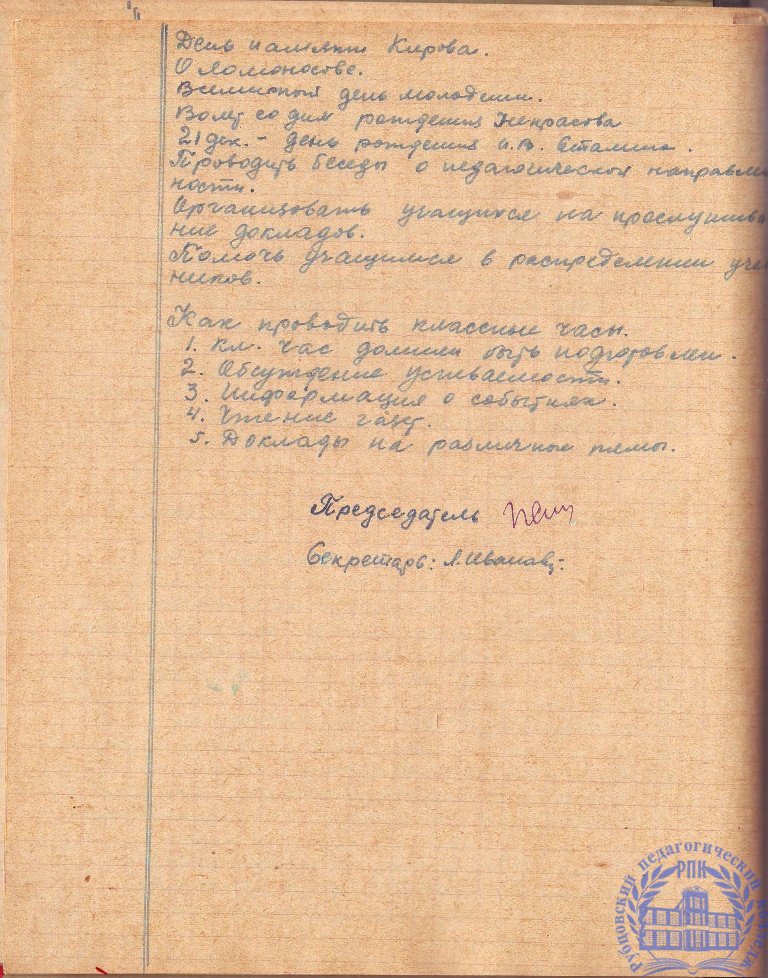 День памяти Кирова.
О Ломоносове.
Всемирный день молодежи.
со дня рождения Некрасова
21 дек. - день рождения И.В. Сталина.
Проводить беседы о педагогической направлен
ности.
Организовать учащихся на прослушива
ние докладов.
Помочь учащимся в распределении уче
ников.
Как проводить классные часы.
1. Кл. час должен быть подготовлен.
2. Обсуждение успеваемости.
3. Информация о событиях.
4. Чтение газет.
5. Доклады на различные темы.
Председатель
Секретарь: Л. Иванова
Рубцовский педагогический колледж
РПК